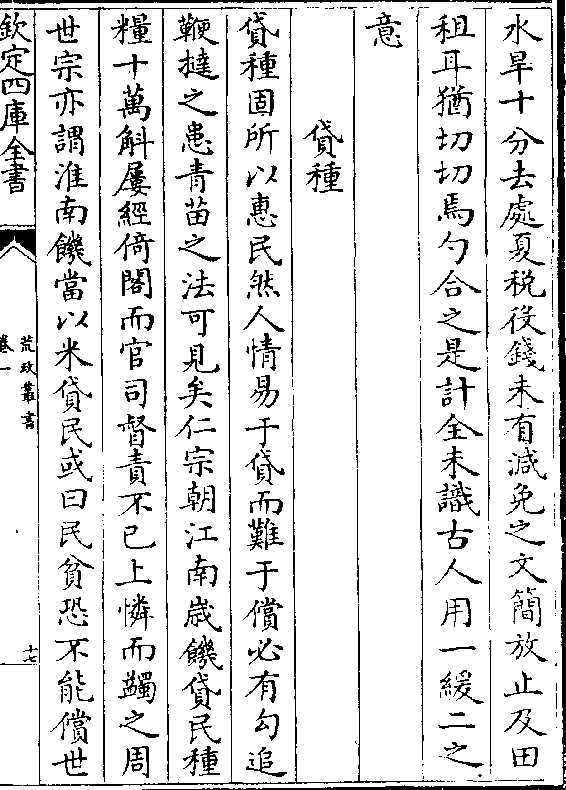 水旱十分去處夏税役錢未有減免之文簡放止及田
租耳猶切切焉勺合之是計全未識古人用一緩二之
意
貸種
貸種固所以惠民然人情易于貸而難于償必有勾追
鞭撻之患青苗之法可見矣仁宗朝江南歲饑貸民種
糧十萬斛屢經倚閣而官司督責不已上憐而蠲之周
世宗亦謂淮南饑當以米貸民或曰民貧恐不能償世
欽定四庫全書
荒政叢書
卷一
十七